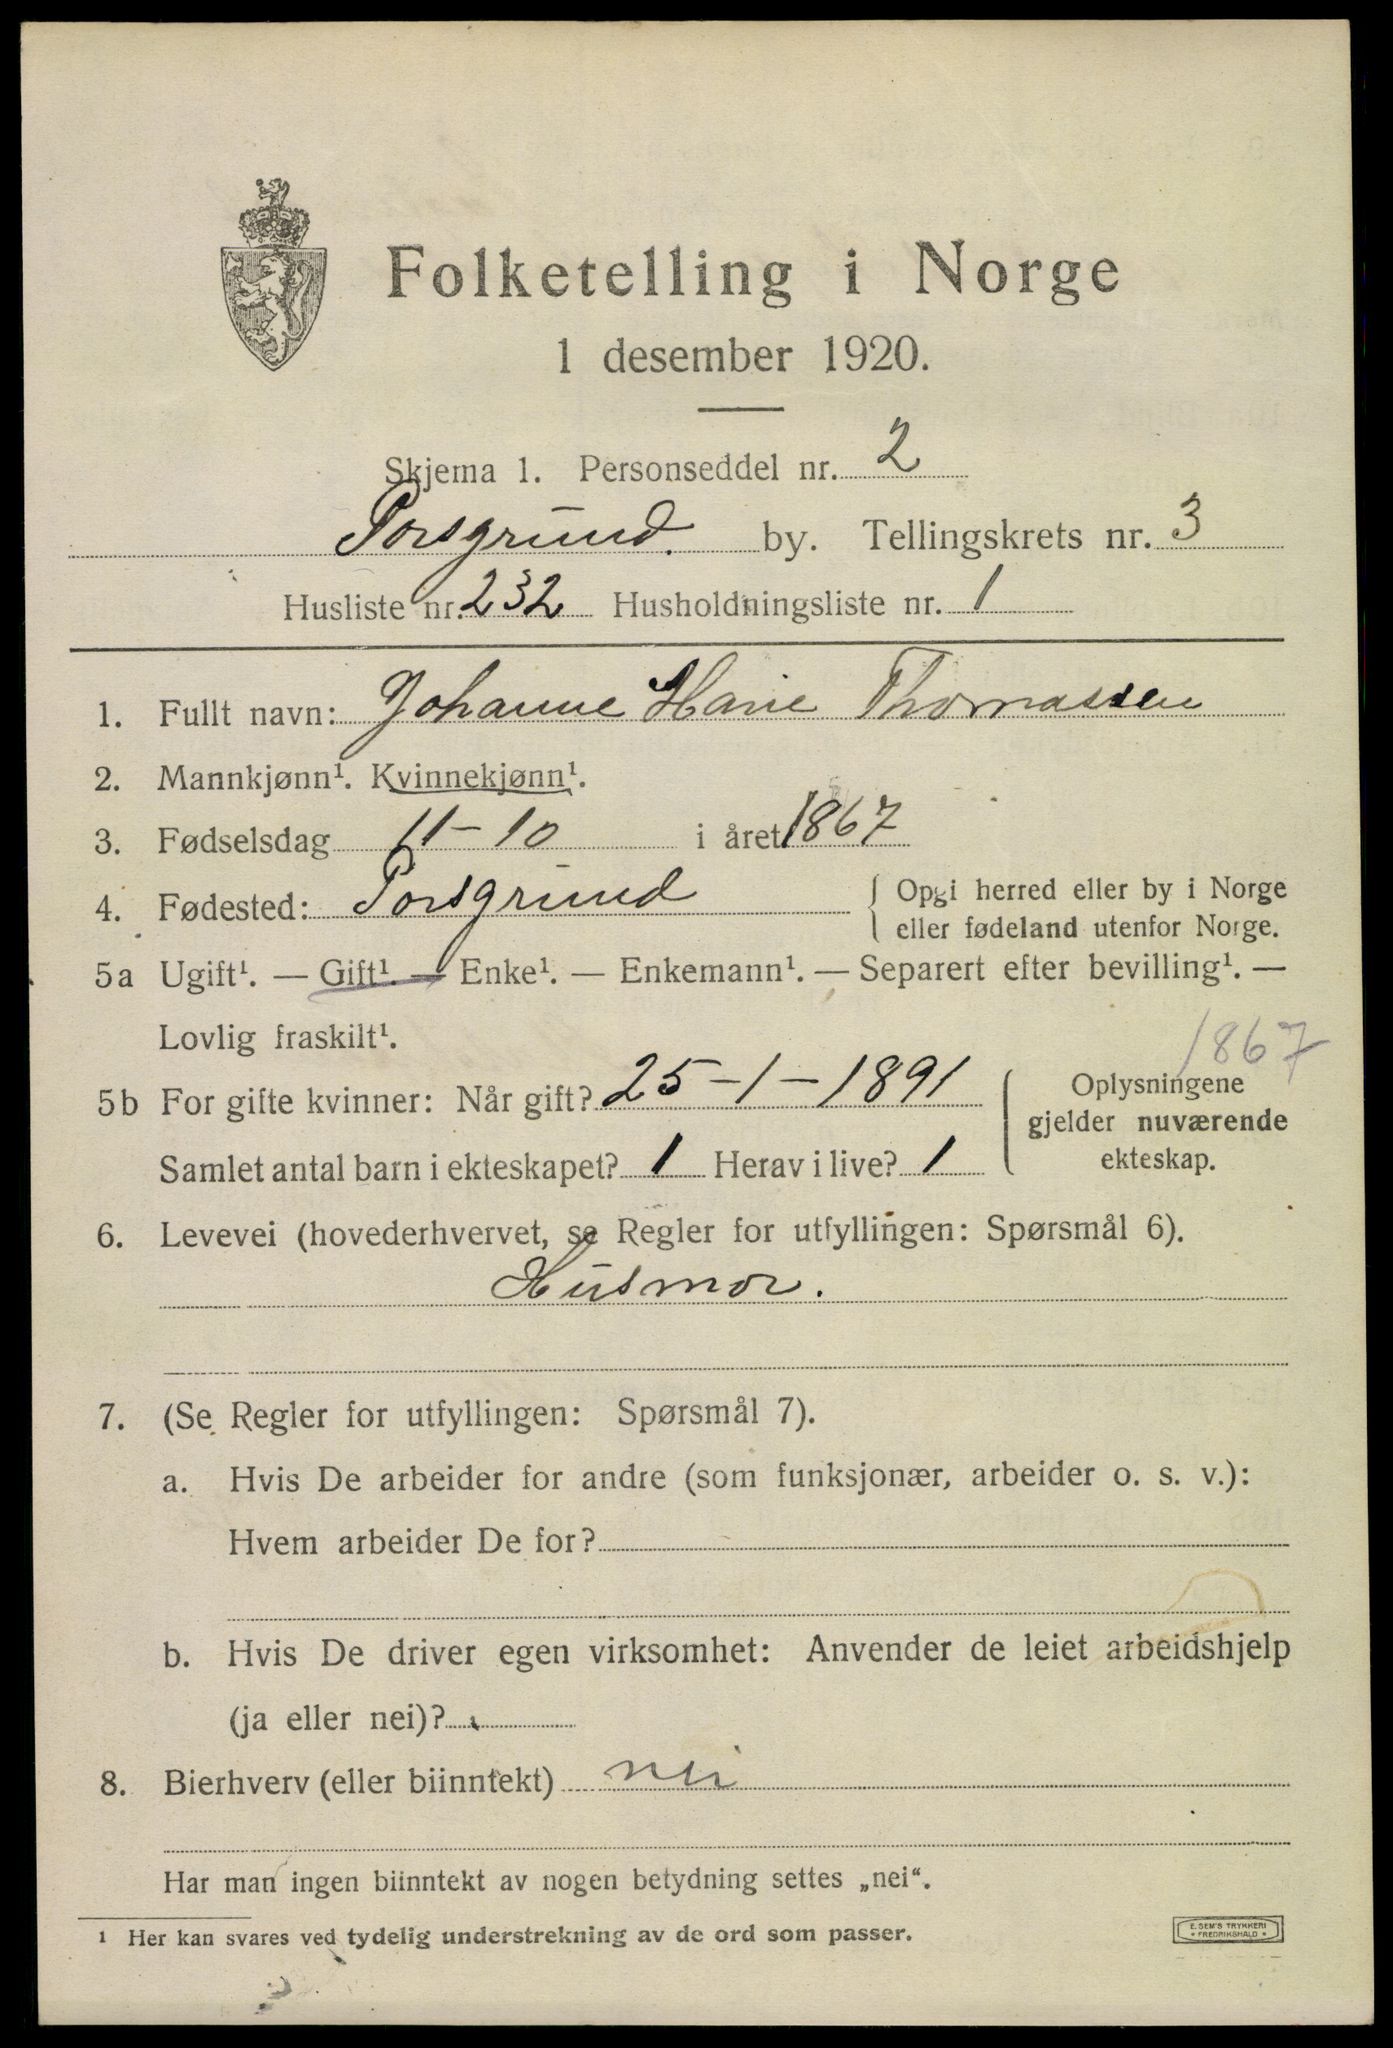 Folketelling i Norge
1 desember 1920.
Skjema 1. Personseddel nr. 2
Porsgrund. by. Tellingskrets nr. 3
Husliste nr. 232 Husholdningsliste nr. 1
1. Fullt navn: Johanne Marie Thomassen
2. Mannkjønn¹. Kvinnekjønn¹.
3. Fødselsdag 11-10 i året 1867
4. Fødested: Porsgrund { Opgi herred eller by i Norge
eller fødeland utenfor Norge.
5a Ugift¹. — Gift¹. — Enke¹. — Enkemann¹. — Separert efter bevilling¹. —
Lovlig fraskilt¹.
1867
5b For gifte kvinner: Når gift? 25-1-1891
Samlet antal barn i ekteskapet? 1 Herav i live? 1
Oplysningene
gjelder nuværende
ekteskap.
6. Levevei (hovederhvervet, se Regler for utfyllingen: Spørsmål 6).
Husmor.
7. (Se Regler for utfyllingen: Spørsmål 7).
a. Hvis De arbeider for andre (som funksjonær, arbeider o. s. v.):
Hvem arbeider De for?
b. Hvis De driver egen virksomhet: Anvender de leiet arbeidshjelp
(ja eller nei)?
8. Bierhverv (eller biinntekt) nei
Har man ingen biinntekt av nogen betydning settes „nei“.
¹ Her kan svares ved tydelig understrekning av de ord som passer.
E. SEM'S TRYKKERI
* FREDRIKSHALD *